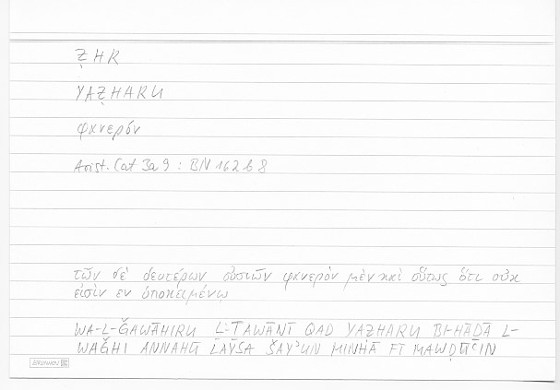 ẒHR
YAẒHARU
φανερόν
Arist. Cat 3a9 : BN 162b8
τῶν δὲ δευτέρων οὐσιῶν φανερὸν μὲν καὶ οὕτως ὅτι οὐκ
εἰσὶν ἐν ὑποκειμένω
WA-L-ǦAWĀHIRU L-TAWĀNĪ QAD YAẒHARU BI-HĀḎĀ L-
WAǦHI ANNAHŪ LAYSA ŠAYʾUN MINHĀ FĪ MAWḌŪʿIN